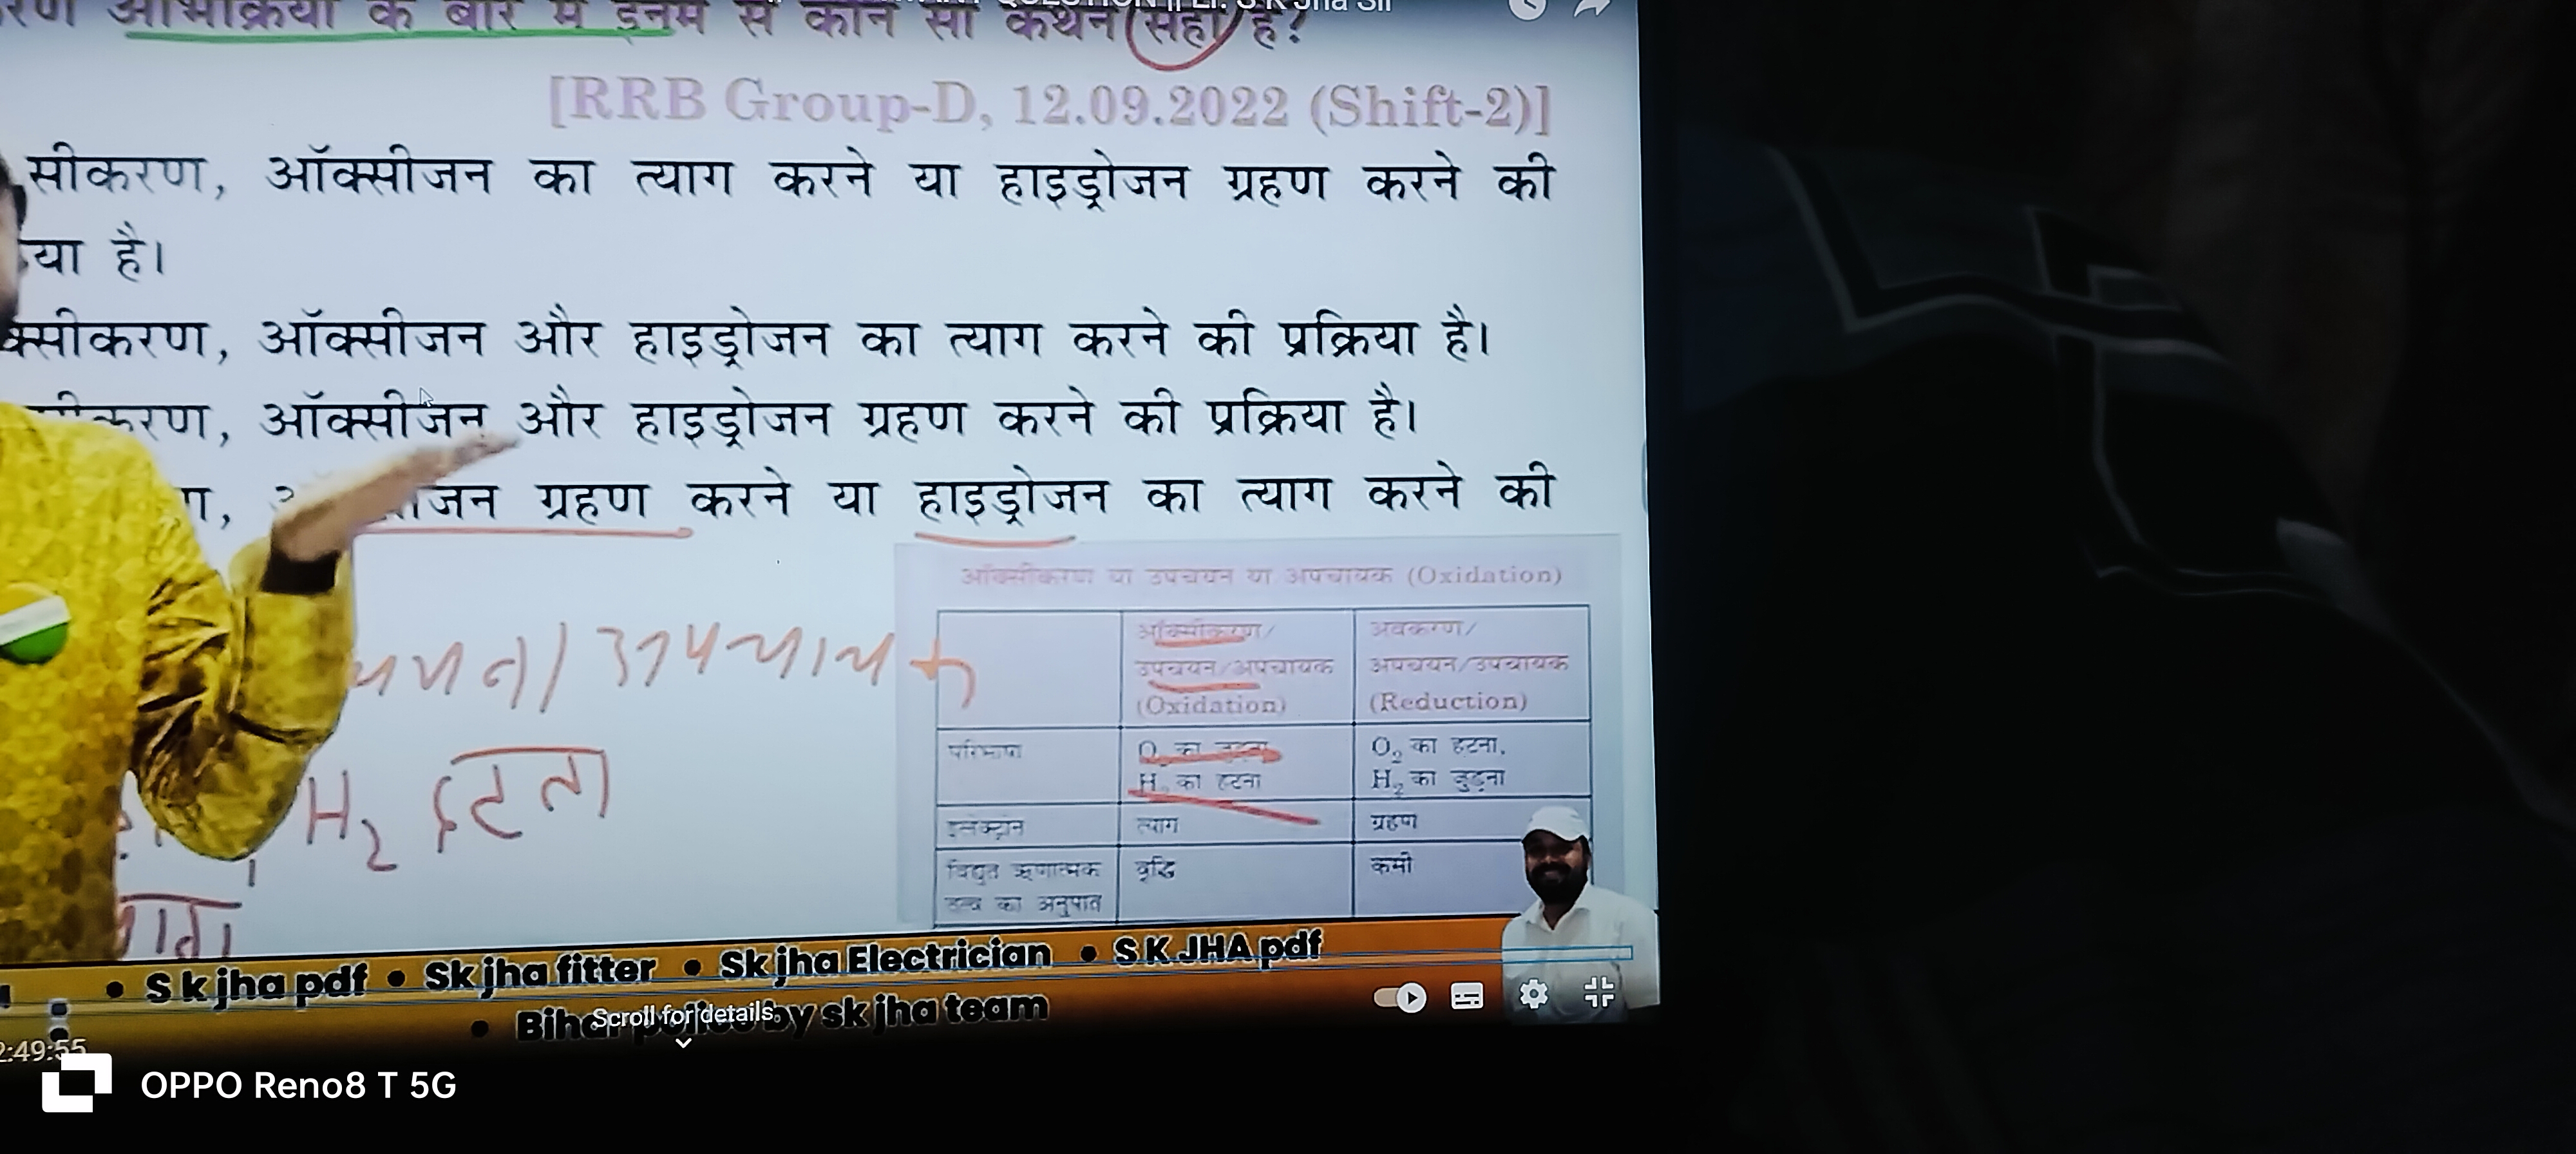 के बारे में इनमें से कौन सा कथन सही है?
[RRB Group-D, 12.09.2022 (Shift-2)]
सीकरण, ऑक्सीजन का त्याग करने या हाइड्रोजन ग्रहण करने की
या है।
क्सीकरण, ऑक्सीजन और हाइड्रोजन का त्याग करने की प्रक्रिया है।
सीकरण, ऑक्सीजन और हाइड्रोजन ग्रहण करने की प्रक्रिया है।
जन ग्रहण करने या हाइड्रोजन का त्याग करने की
ऑक्सीकरण या उपचयन या अपचायक (Oxidation)
ऑक्सीकरण/ अवकरण/
उपचयन/अपचायक अपचयन/उपचायक
(Oxidation) (Reduction)
परिभाषा O₂ का जुड़ना O₂ का हटना,
H₂ का हटना H₂ का जुड़ना
इलेक्ट्रॉन त्याग ग्रहण
विद्युत ऋणात्मक वृद्धि कमी
तत्व का अनुपात
H₂ हटना
• S k jha pdf • Sk jha fitter • Sk jha Electrician • S K JHA pdf
• Bihar police by sk jha team
Scroll for details
2:49:55
OPPO Reno8 T 5G